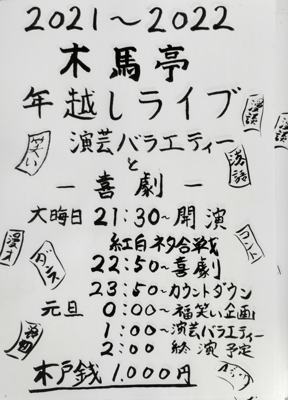 2021〜2022
木馬亭
年越しライブ
演芸バラエティー
と
－喜劇－
落語
コント
漫才
ダンス
大晦日 21:30〜開演
紅白ネタ合戦
22:50〜喜劇
23:50〜カウントダウン
元旦 0:00〜福笑い企画
1:00〜演芸バラエティー
2:00 終演予定
木戸銭 1.000円